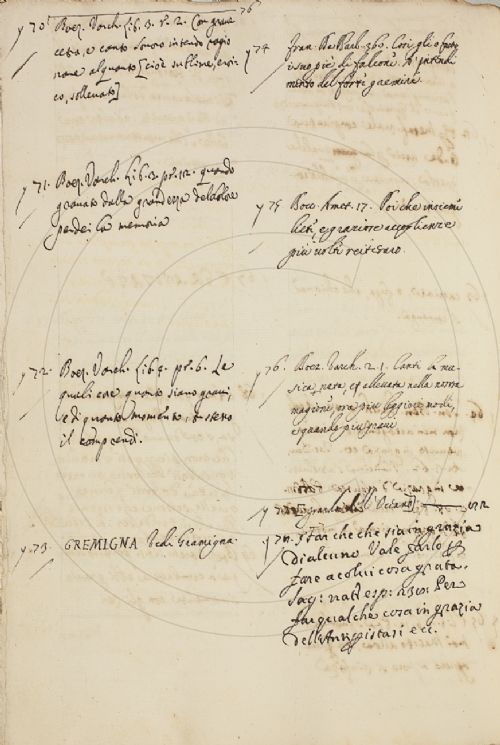 76
y 70. Boez. Varch. Lib. 3. r. 2. Con grave
cetra, e canto sonoro intendo ragio
nare alquanto [cioè sublime, eroi
co, sollevato]
y 71. Boez. Varch. Lib. 3. pr. 12. quando
gravato dalla grandezza del dolore
perdei la memoria
y 72. Boez. Varch. Lib. 4. pr. 6. Le
quali cose quanto siano gravi,
e di quanto momento tu stesso
il comprendi.
y 73. GREMIGNA Vedi Gramigna
y 74 Fran. Barb. 360. Così gli
di falconi
mento del
y 75 Bocc. Amet. 17. Poi che insieme
lieti, e graziose accoglienze
più volte
y 76. Boez. Varch. 2. 1. Canti la mu-
sica nata, et allevata nella nostra
magione ora più leggiere modi,
e quando più gravi
y 77 Star che che sia in grazia
di alcuno Vale farlo
fare a colui cosa grata.
Sag: nat: esp: Per
far qualche cosa in grazia
dell' Antiperistasi ecc.